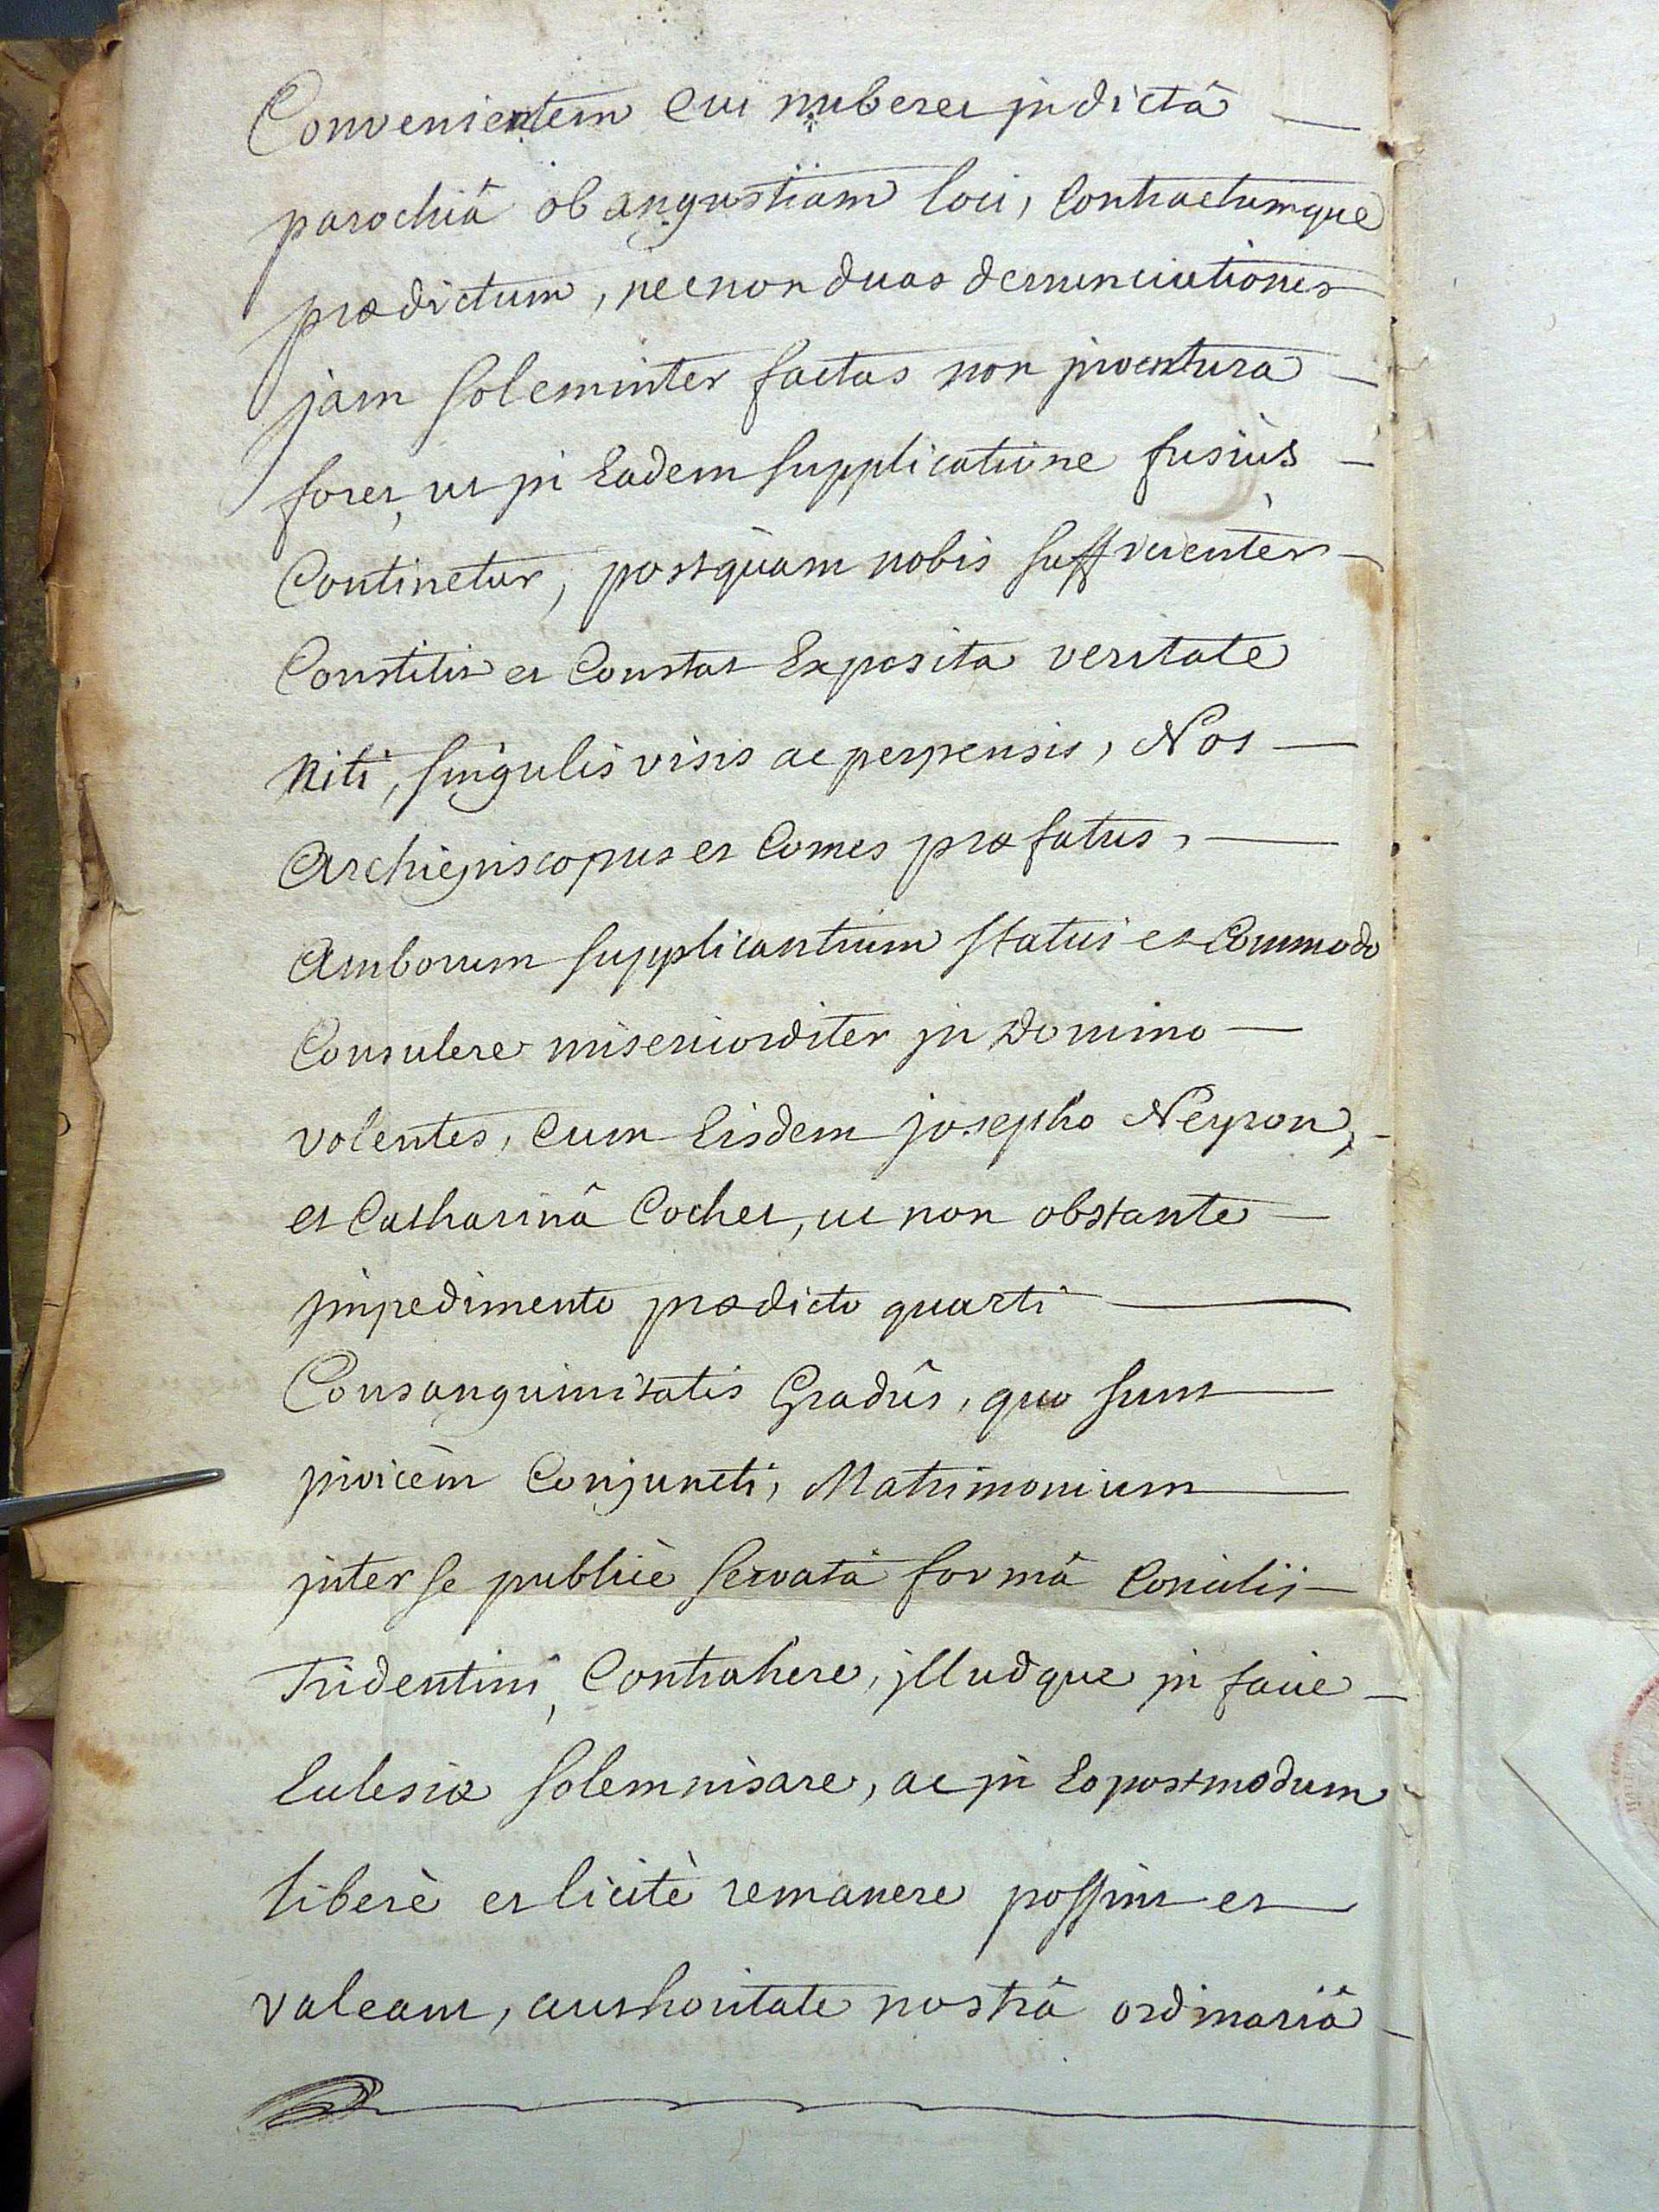 Convenientem cui nuberet in dictâ
parochiâ ob angustiam loci, Contractumque
prædictum, necnon duas denunciationes
jam soleminter factas non inventura
foret, ut in Eadem supplicatione fusiùs
Continetur, postquàm nobis sufficientèr
Constitit et Constat Exposita veritate
niti, singulis visis ac perpensis, Nos
Archiepiscopus et Comes præfatus,
Amborum supplicantium statui et Commodo
Consulere misericorditer in Domino
volentes, cum Eisdem josepho Neyron,
et Catharinâ Cochet, ut non obstante
impedimento prædicto quarti
Consanguinitatis Gradûs, quo sunt
invicèm Conjuncti, Matrimonium
inter se publicè servatâ formâ Concilii
Tridentini, Contrahere, illudque in facie
Ecclesiæ solemnisare, ac in Eo postmodum
liberè et licitè remanere possint et
valeant, authoritate nostrâ ordinariâ